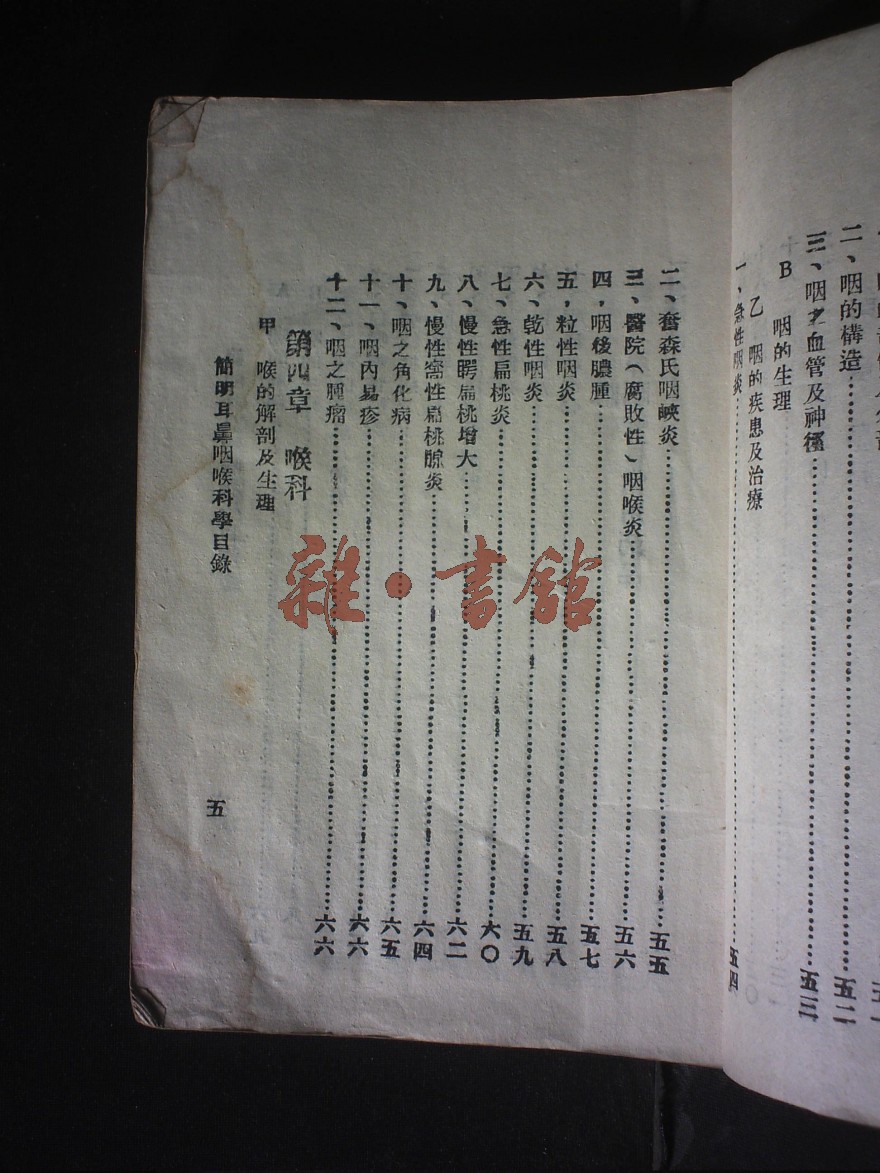 二、咽的構造……五二
三、咽之血管及神經……五三
B 咽的生理
乙 咽的疾患及治療
一、急性咽炎……五四
二、奮森氏咽峽炎……五五
三、醫院(腐敗性)咽喉炎……五六
四，咽後膿腫……五七
五，粒性咽炎……五八
六、乾性咽炎……五九
七、急性扁桃炎……六〇
八、慢性腭扁桃增大……六二
九、慢性窩性扁桃腺炎……六四
十、咽之角化病……六五
十一、咽內易疹……六六
十二、咽之腫瘤……六六
第四章 喉科
甲 喉的解剖及生理
簡明耳鼻咽喉科學目錄
五
雜·書館